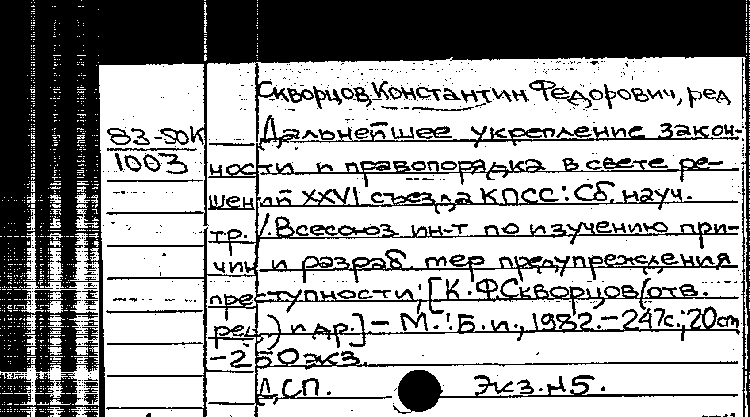 Скворцов, Константин Федорович, ред
83-50К Дальнейшее укрепление закон-
1003 ности и правопорядка в свете ре-
шений XXVI съезда КПСС: Сб. науч.
тр. / Всесоюз ин-т по изучению при-
чин и разраб. мер предупреждения
преступности; [К. Ф. Скворцов (отв.
ред.) и др.] – М.: Б. и., 1982. – 247с.; 20cm
– 250экз.
ДСП. Экз. №5.